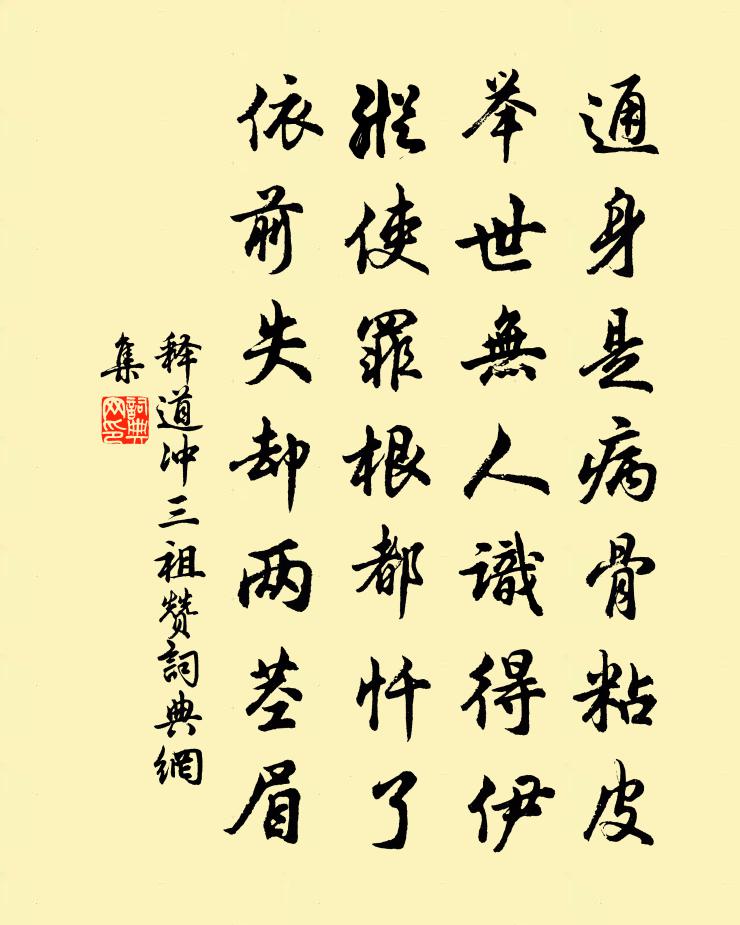 通身是病骨粘皮
举世無人識得伊
縱使罪根都忏了
依前失却两茎眉
释道冲三祖赞詞典網
集
詞典网印